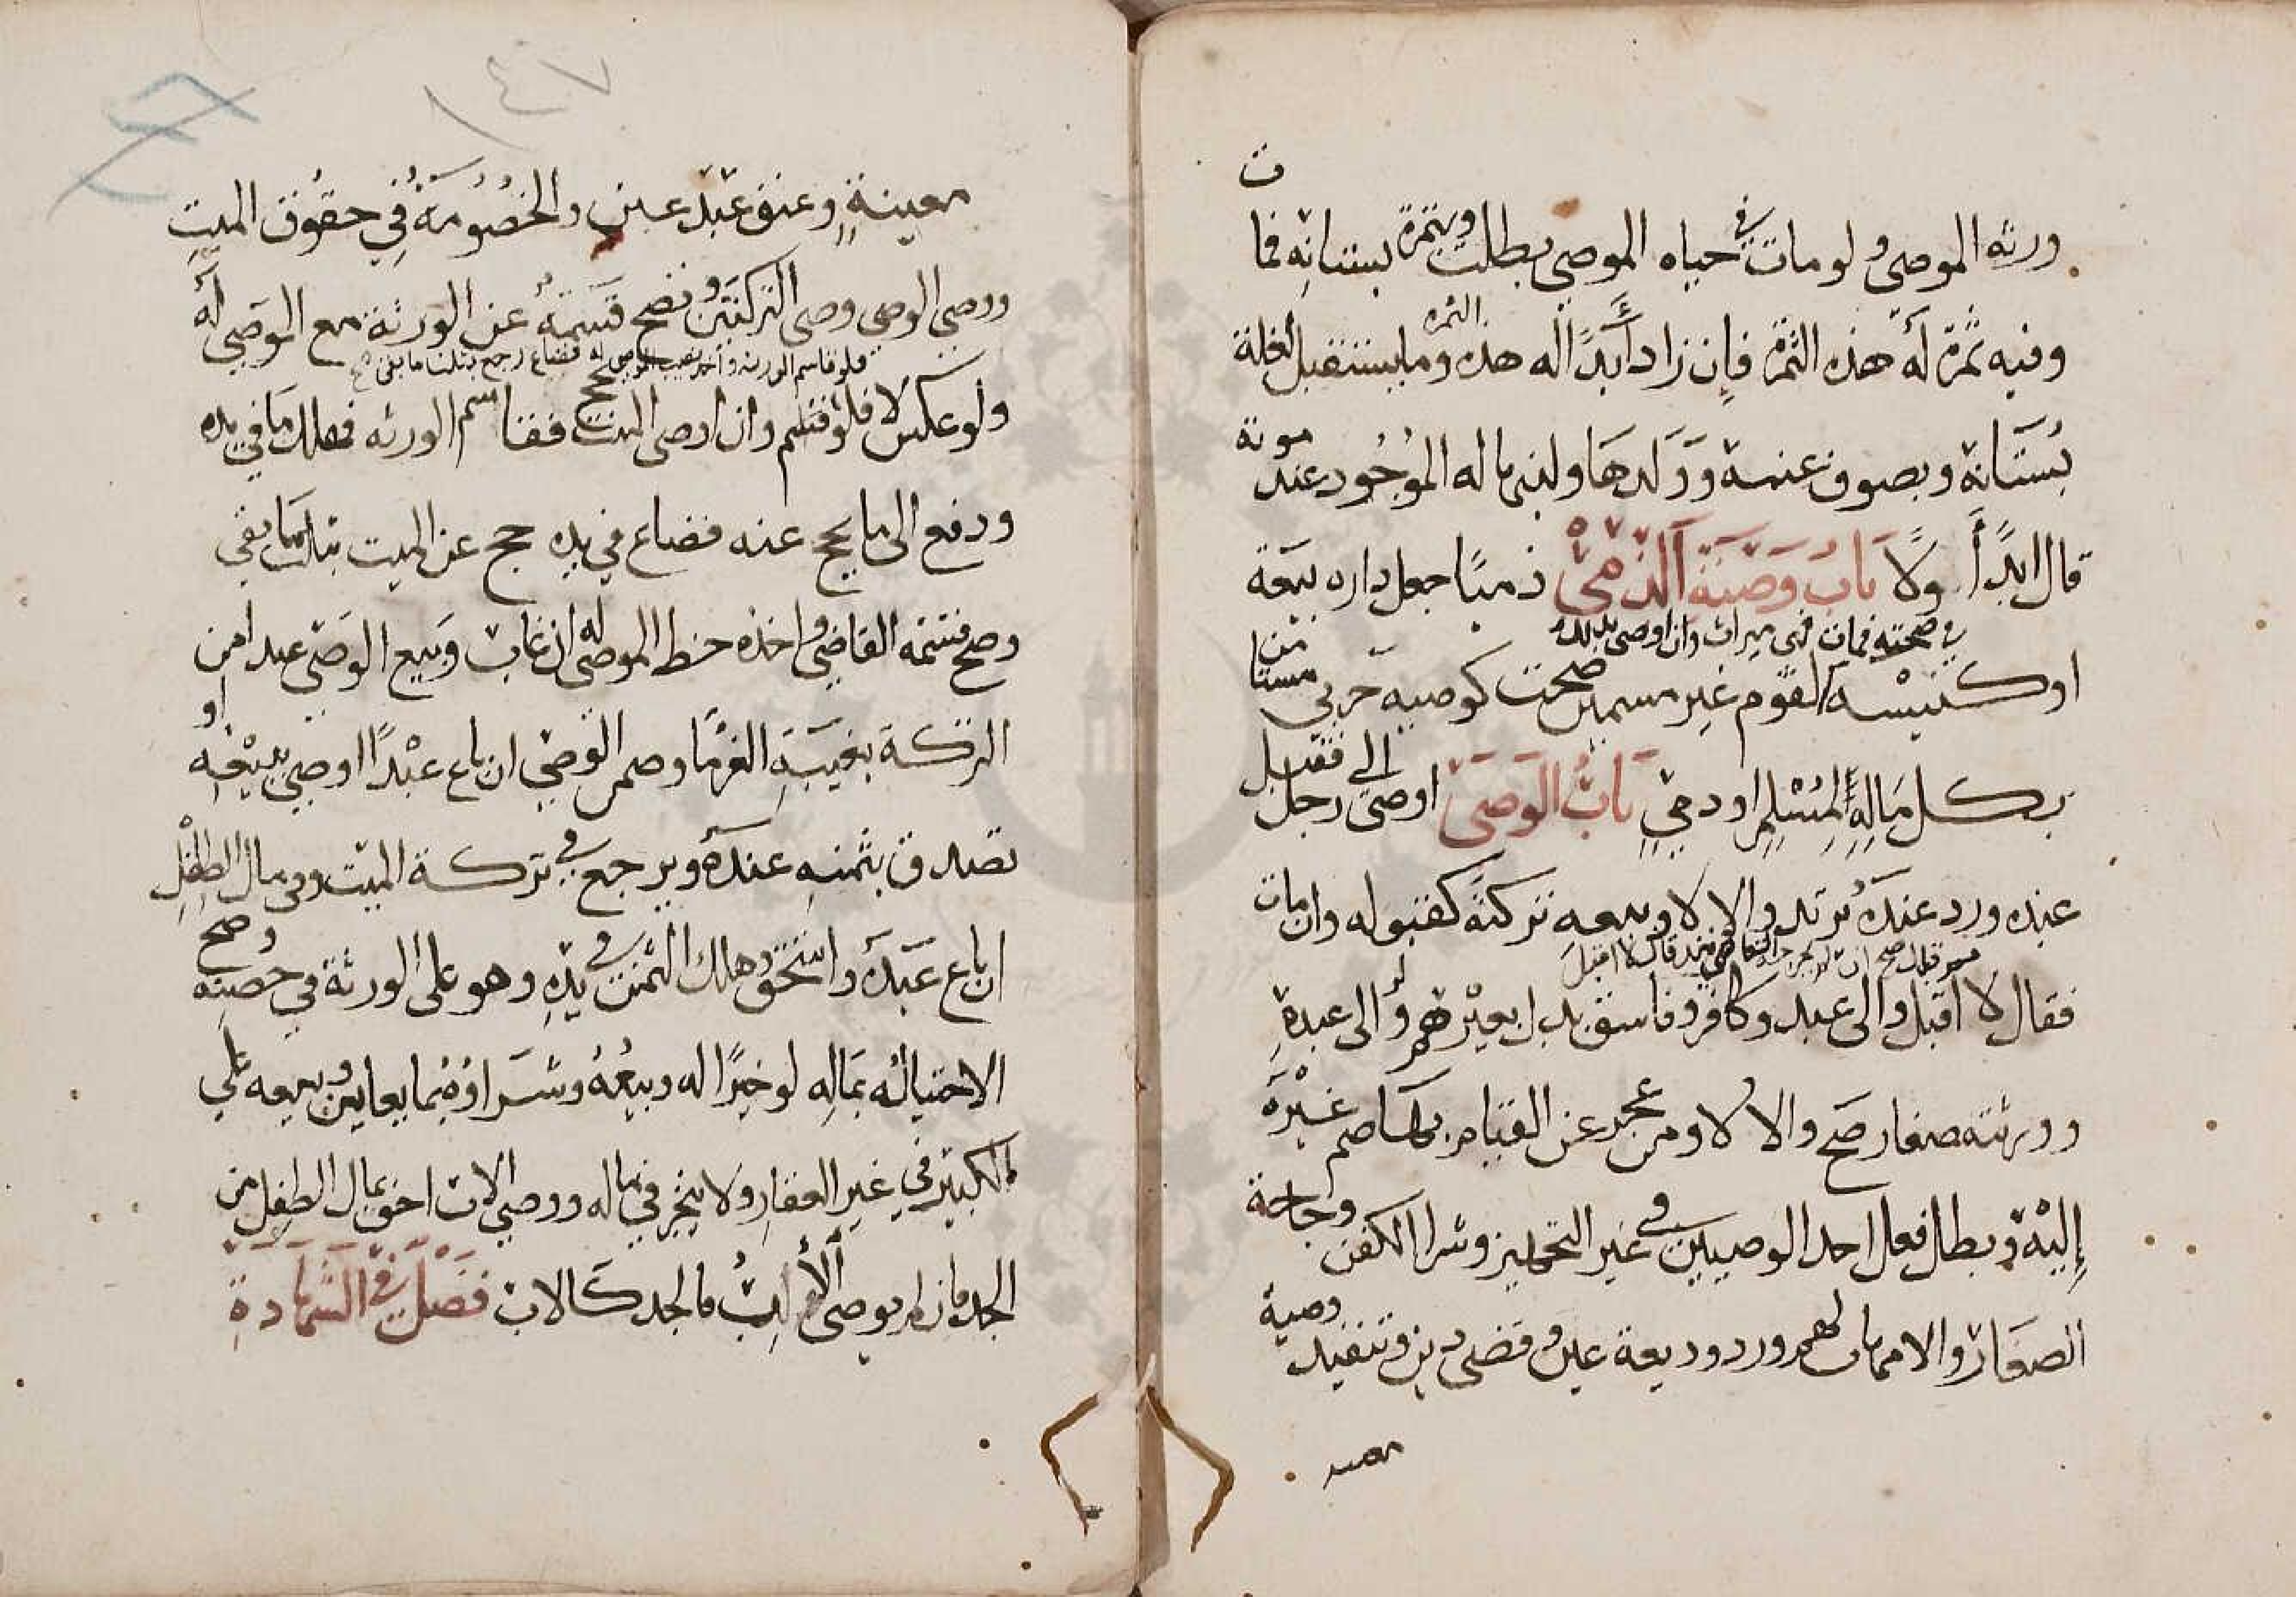 ورثه الموصى ولو مات في حياه الموصي بطلت وبثمرة بستانه فمات
وفيه ثمرة له هذه الثمرة فإن زاد أبدًا له هذه الثمرة وما يستقبل كغلة
بُستَانه وبصوف غنمه وولدها ولبنها له الموجود عند موته
قال ابدًا أولًا باب وصية الذمي ذمي جعل داره بيعة
في صحته فمات فهي ميراث وان اوصى بذلك
او كنيسة لقوم غير مسمين صحت كوصية حربي مستامن
بكل ماله لمسلم او ذمي باب الوصي اوصى الى رجل فقبل
عنده ورد عنده يرتد والا لا وبيعه تركته كقبوله وان مات
فقال لا اقبل ثم قبل صح ان لم يخرجه القاضي منذ قال لا اقبل
والى عبد وكافر وفاسق بدل بغيرهم ولو الى عبده
وورثته صغار صح والا لا ومن عجز عن القيام بها ضم غيره
إليه وبطل فعل احد الوصيين في غير التجهيز وشرا الكفن وحاجة
الصغار والاتهاب لهم ورد وديعة عين وقضى دين وتنفيذ وصية
معينه
١٤٧
معينةٍ وعتق عبد عين والخصومة في حقوق الميت
ووصي الوصي وصي التركتين وتصح قسمته عن الورثة مع الموصي له
فلو قاسم الورثة واخذ نصيب الموصى له فضاع رجع بثلث ما بقي صح
ولو عكس لا وان اوصى الميت بحجة فقاسم الورثه فهلك ما في يده
ودفع الى ما يحج عنه فضاع في يده حج عن الميت بثلث ما بقي
وصح قسمة القاضي واخذه حظ الموصى له ان غاب وبيع الوصي عبدا من
التركة بغيبة الغرما وضمن الوصي ان باع عبدًا اوصي ببيعه او
تصدق بثمنه عنده ويرجع في تركة الميت وفي مال الطفل
ان باع عبده واستحق وهلك الثمن في يده وهو على الورثة في حصته وصح
الاحتياله بماله لو خيرًا له وبيعه وشراؤه بما يتغابن وبيعه على
الكبير في غير العقار ولا يتجر في ماله ووصي الاب احق بمال الطفل من
الجد فان لم يوصي الاب فالجد كالاب فصل في الشهادة